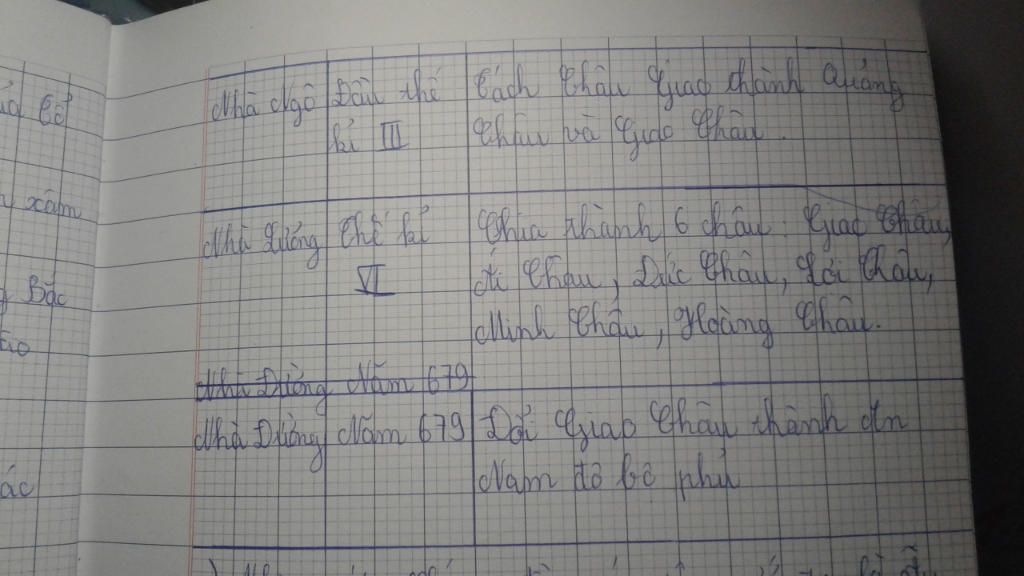 ủa Cổ
n xâm
g Bắc
tạo
ác
Nhà Ngô Đầu thế Cách Châu Giao thành Quảng
kỉ III Châu và Giao Châu.
Nhà Lương Thế kỉ Chia thành 6 châu: Giao Châu,
VI Ái Châu, Đức Châu, Lợi Châu,
Minh Châu, Hoàng Châu.
Nhà Đường Năm 679
Nhà Đường Năm 679 Đổi Giao Châu thành An
Nam đô hộ phủ